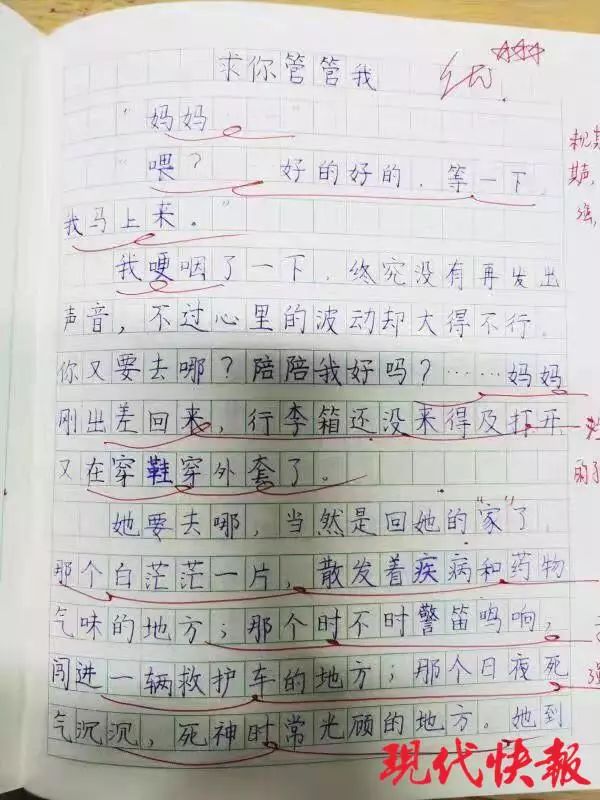 求你管管我
优
"妈妈……"
"喂？……好的好的，等一下，
我马上来。"
我哽咽了一下，终究没有再发出
声音，不过心里的波动却大得不行。
你又要去哪？陪陪我好吗？……妈妈
刚出差回来，行李箱还没来得及打开
又在穿鞋穿外套了。
她要去哪，当然是回她的"家"了，
那个白茫茫一片，散发着疾病和药物
气味的地方；那个时不时警笛鸣响，
闯进一辆救护车的地方；那个日夜死
气沉沉，死神时常光顾的地方。她到
现代快報